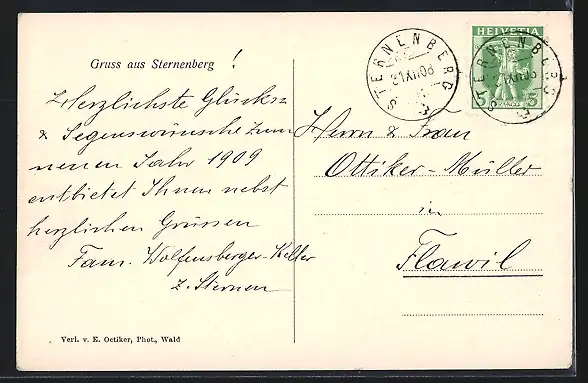 Gruss aus Sternenberg !
Herzlichste Glücks=
& Segenswünsche zum
neuen Jahr 1909
entbietet Ihnen nebst
herzlichen Grüssen
Fam. Wolfensberger-Keller
z. Sternen
Verl. v. E. Oetiker, Phot., Wald
STERNENBERG
31.XII.08
HELVETIA
5 FRANCO 5
STERNENBERG
31.XII.08
Herrn & Frau
Ottiker-Müller
in
Flawil